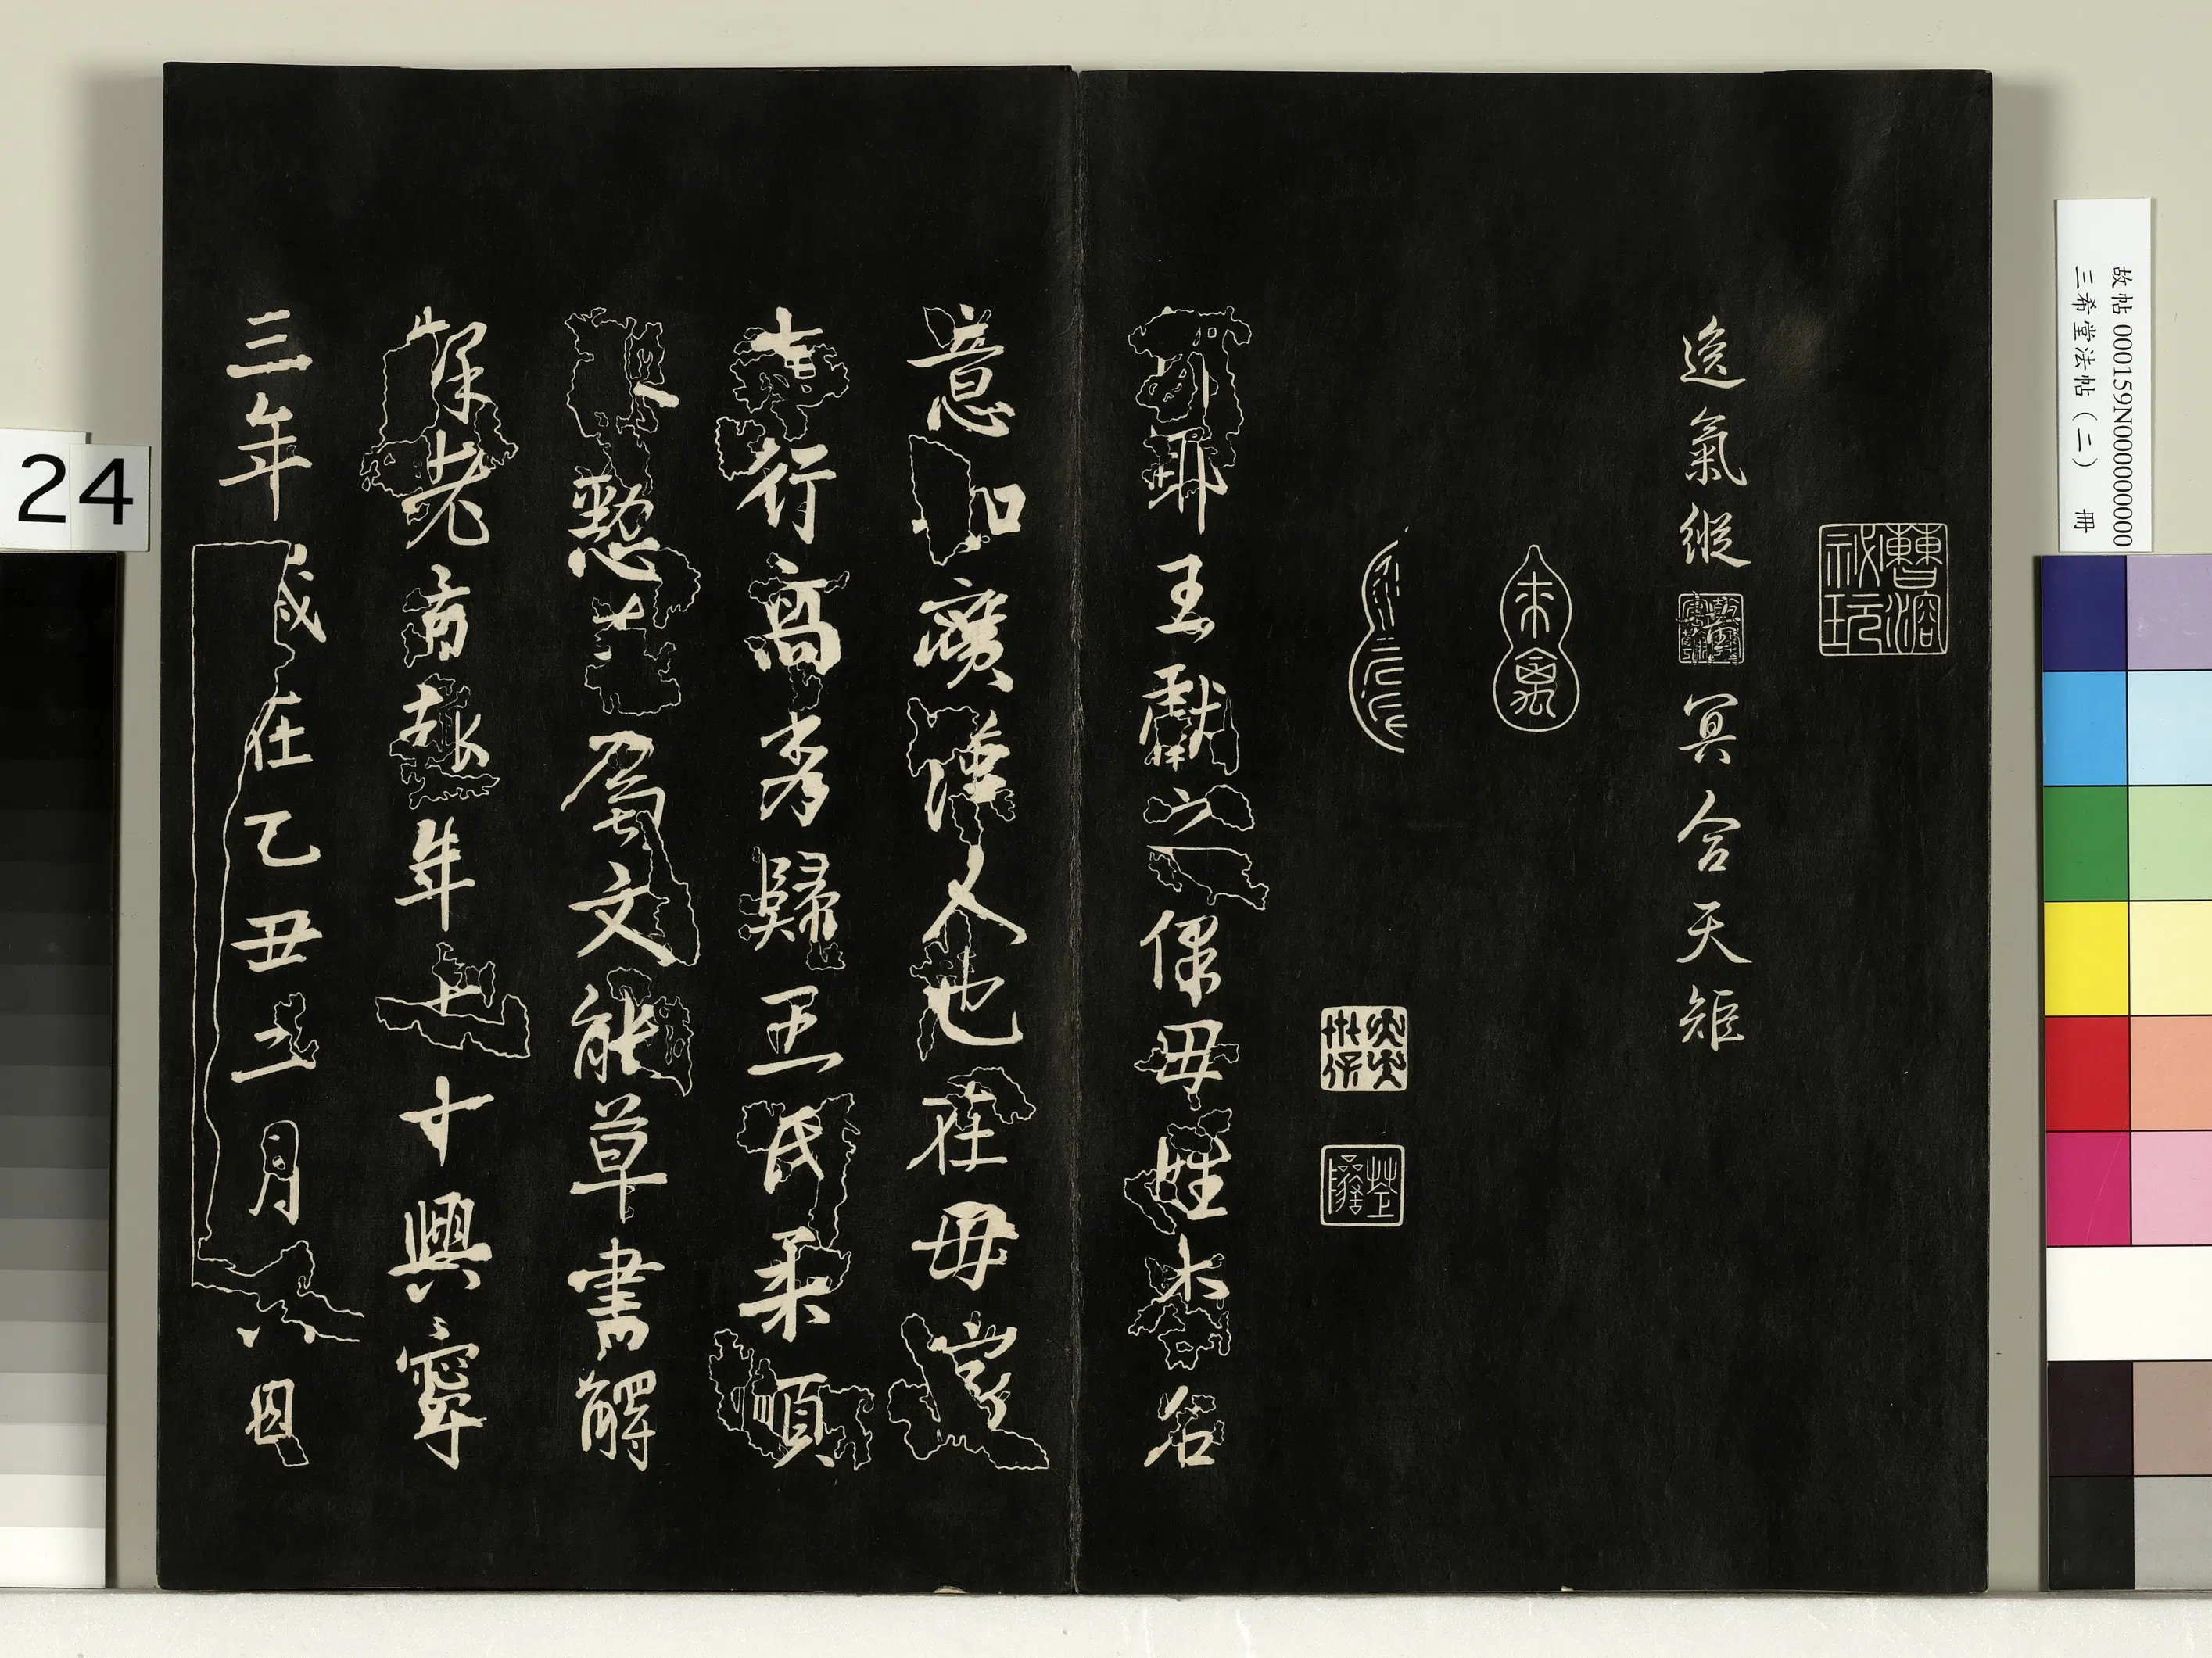 逸氣縱冥合天矩
耶王獻之保母姓李名
意如廣漢人也在母家
志行高秀歸王氏柔順
恭懃善屬文能草書解
釋老旨趣年七十興寧
三年歲在乙丑二月六日
24
故帖 000159N000000000
三希堂法帖(二) 冊